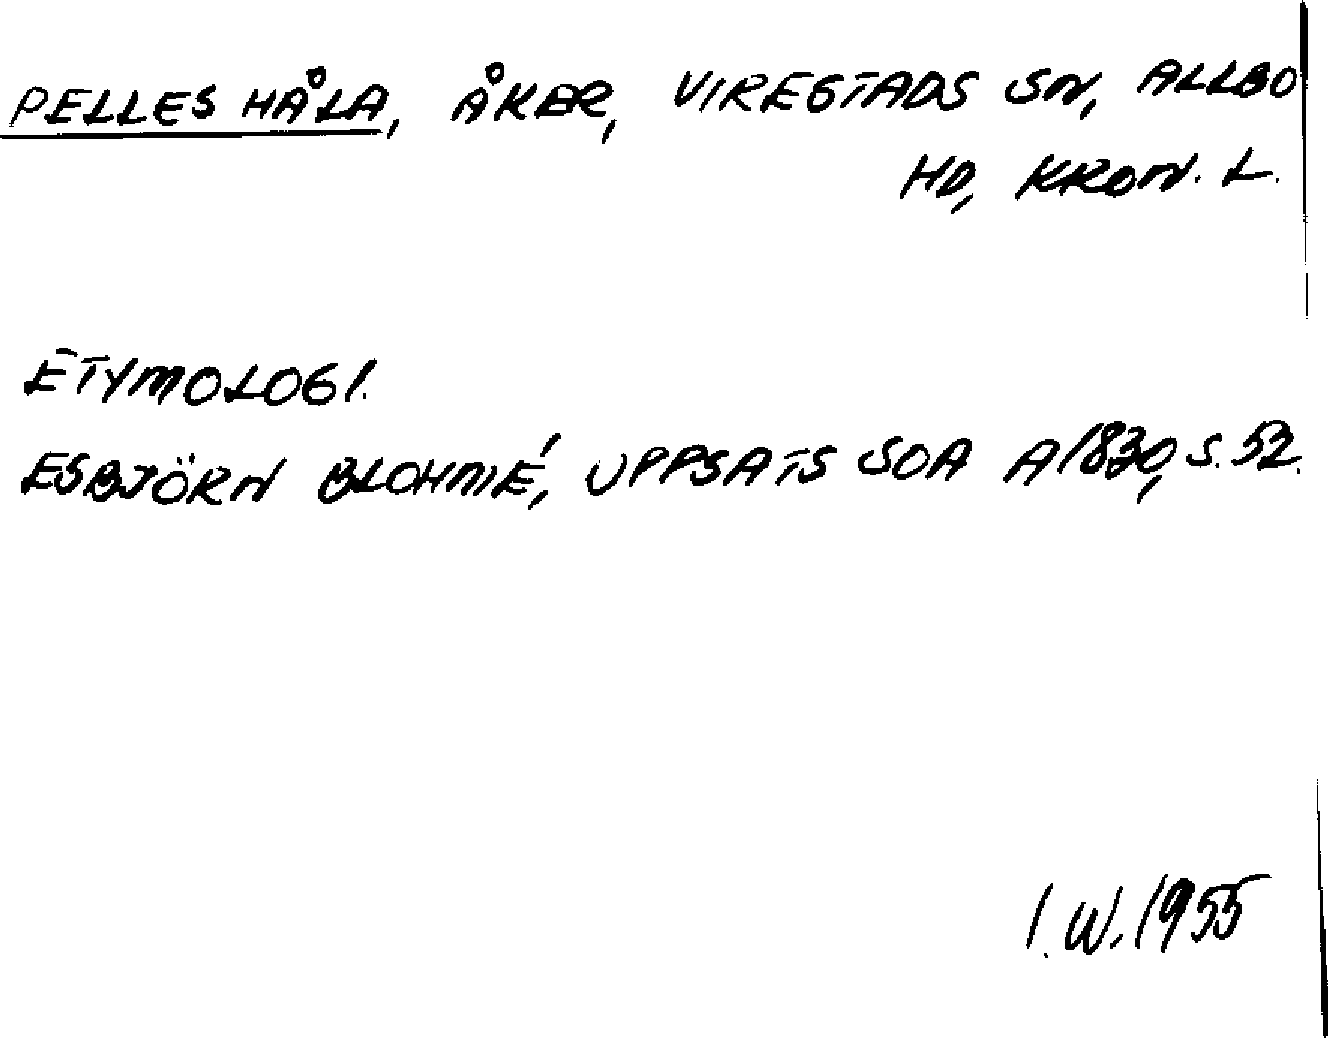 PELLES HÅLA, ÅKER, VIRESTADS SN, ALLBO
HD, KRON. L.
ETYMOLOGI.
ESBJÖRN BLOHMÉ, UPPSATS SOA A1830, S. 52.
I. W. 1955